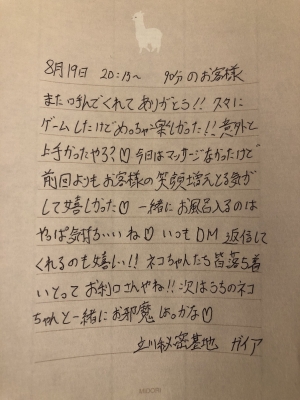 8月19日 20:15〜 90分のお客様
また呼んでくれてありがとう!! 久々に
ゲームしたけどめっちゃ楽しかった!! 意外と
上手かったやろ?♡ 今日はマッサージなかったけど
前回よりもお客様の笑顔増えとる気が
して嬉しかった♡ 一緒にお風呂入るのは
やっぱ気持ちいいね♡ いつもDM返信して
くれるのも嬉しい!! ネコちゃんたち皆落ち着
いとってお利口さんやね!! 次はうちのネコ
ちゃんと一緒にお邪魔しよっかな♡
立川秘密基地 ガイア